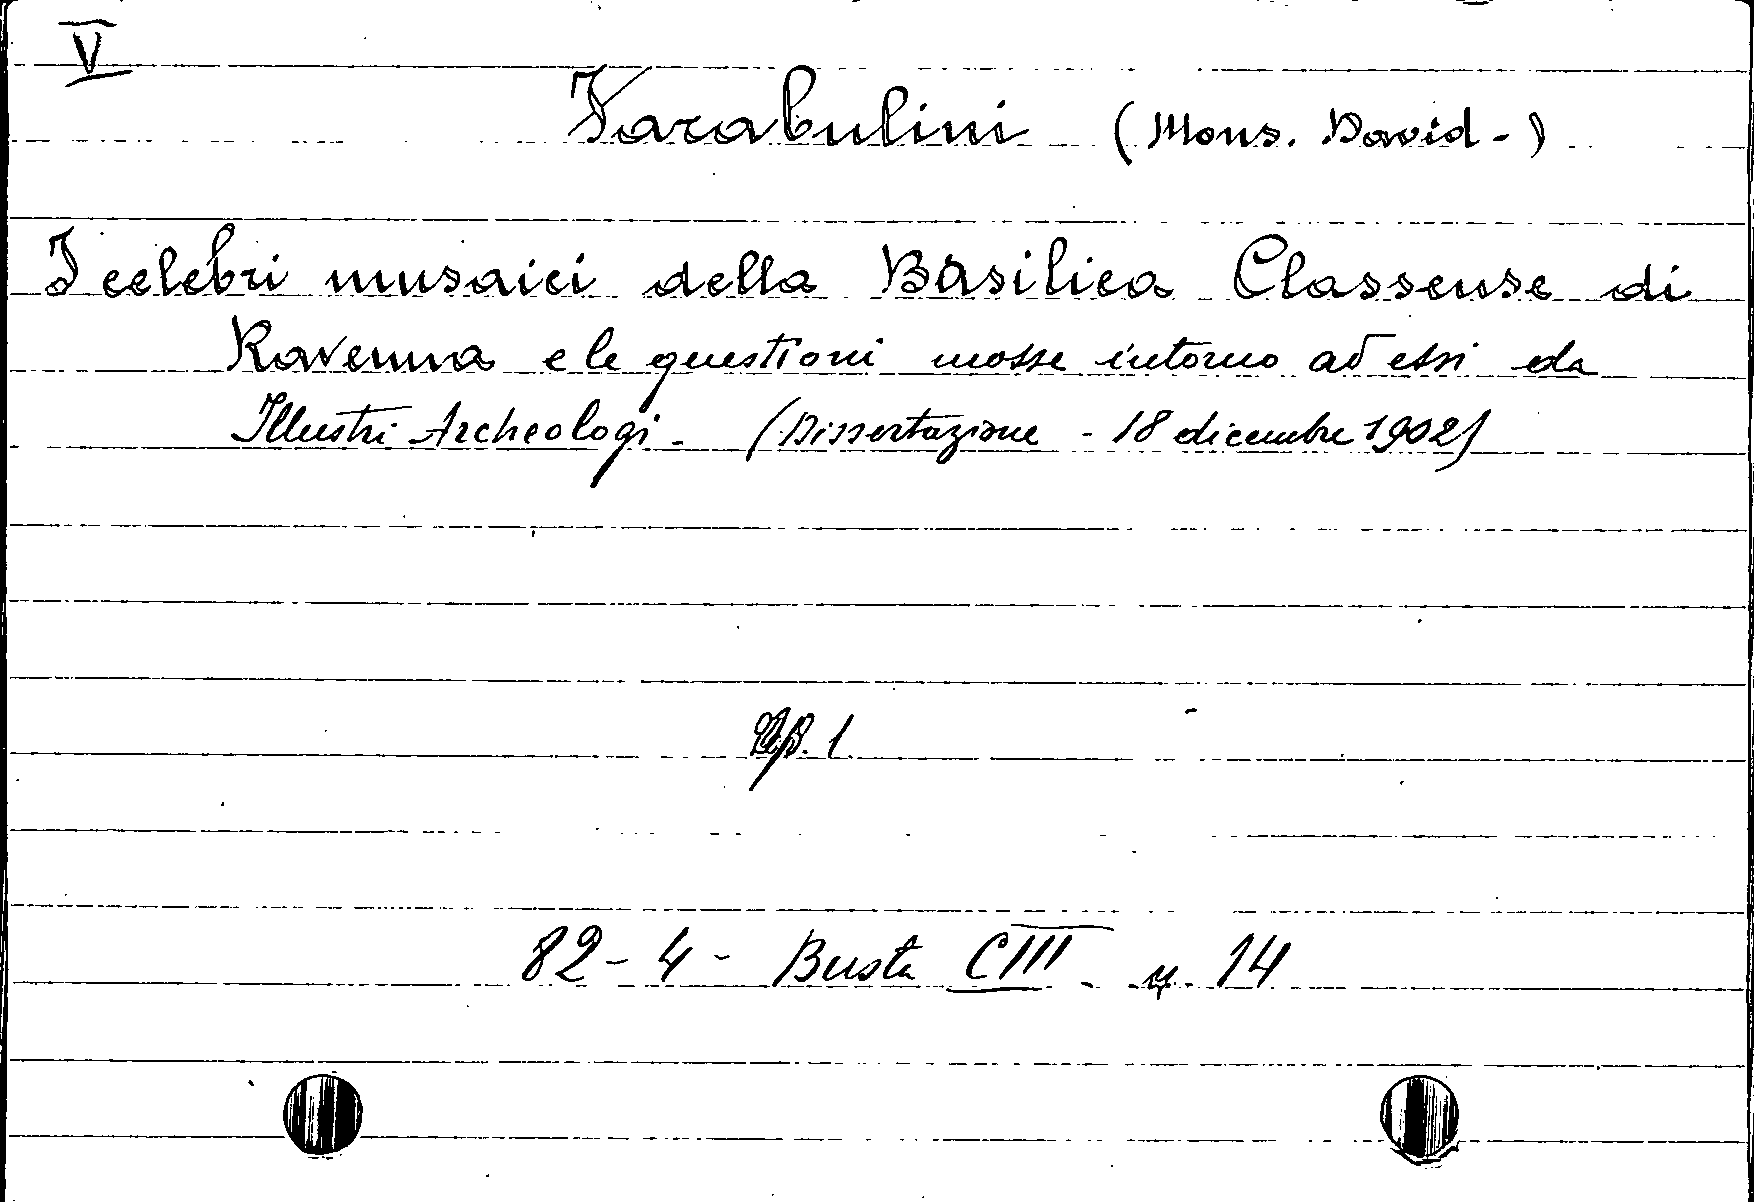 V
Farabulini (Mons. David - )
I celebri musaici della Basilica Classense di
Ravenna e le questioni mosse intorno ad essi da
Illustri Archeologi - (Dissertazione - 18 dicembre 1902)
1
82 - 4 - Busta CIII - n. 14